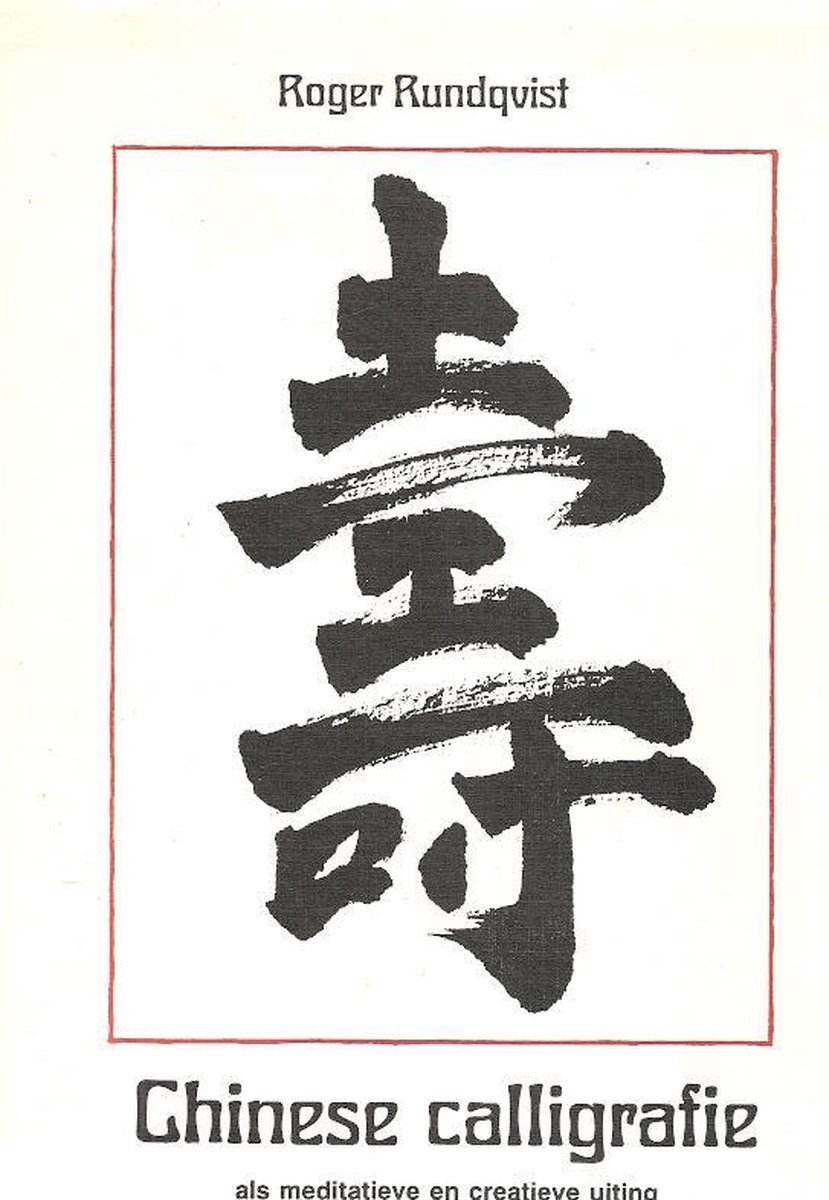 Roger Rundqvist
壽
Chinese calligrafie
als meditatieve en creatieve uiting